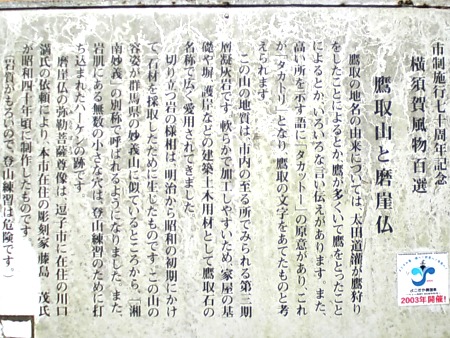 市制施行七十周年記念
横須賀風物百選
鷹取山と磨崖仏
鷹取の地名の由来については、太田道灌が鷹狩り
をしたことによるとか鷹が多くいて鷹をとったこと
によるとか、いろいろな言い伝えがあります。また、
高い所を示す語に「タカットリ」の原意があり、これ
が「タカトリ」となり、鷹取の文字をあてたものと考
えられます。
この山の地質は、市内の至る所でみられる第三期
層凝灰岩です。軟らかで加工しやすいため、家屋の基
礎や塀、護岸などの建築土木用材として鷹取石の
名称で広く愛用されてきました。
切り立つ岩の様相は、明治から昭和の初期にかけ
て石材を採取したために生じたものです。この山の
容姿が群馬県の妙義山に似ているところから、「湘
南妙義」の別称で呼ばれるようになりました。また、
岩肌にある無数の小さな穴は、登山練習のために打
ち込まれたハーケンの跡です。
磨崖仏の弥勒菩薩尊像は、逗子市に在住の川口
満氏の依頼により、本市在住の彫刻家 藤島 茂氏
が昭和四十年頃に制作したものです。
（岩質がもろいので、登山練習は危険です。）
2003年開催!